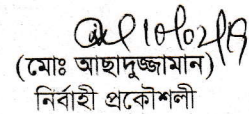 10/02/19
(মোঃ আছাদুজ্জামান)
নির্বাহী প্রকৌশলী